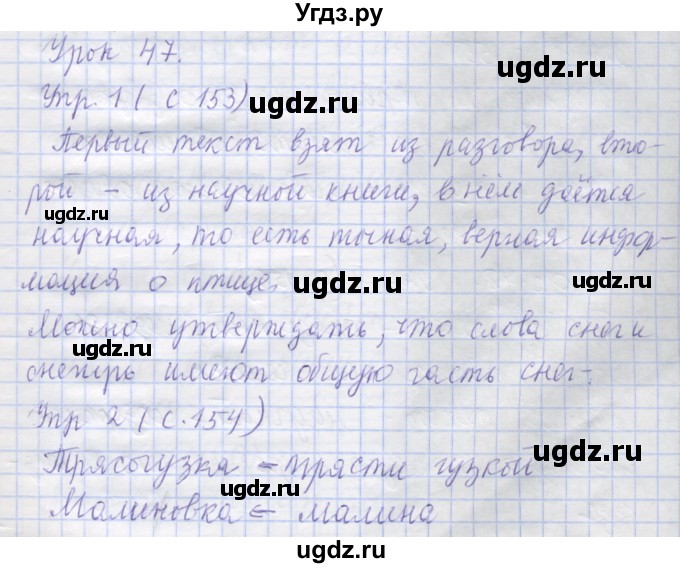 Угдз.ру
Урок 47.
Упр. 1 ( с 153)
ugdz.ru
ugdz.ru
Первый текст взят из разговора, вто-
ugdz.ru
рой – из научной книги, в нём даётся
ugdz.ru
научная, то есть точная, верная инфор-
мация о птице.
ugdz.ru
ugdz.ru
Можно утверждать, что слова снег и
ugdz.ru
ugdz.ru
снегирь имеют общую часть снег-.
Упр 2 ( с. 154)
ugdz.ru
ugdz.ru
Трясогузка – трясти гузкой
ugdz.ru
Малиновка – малина
ugdz.ru